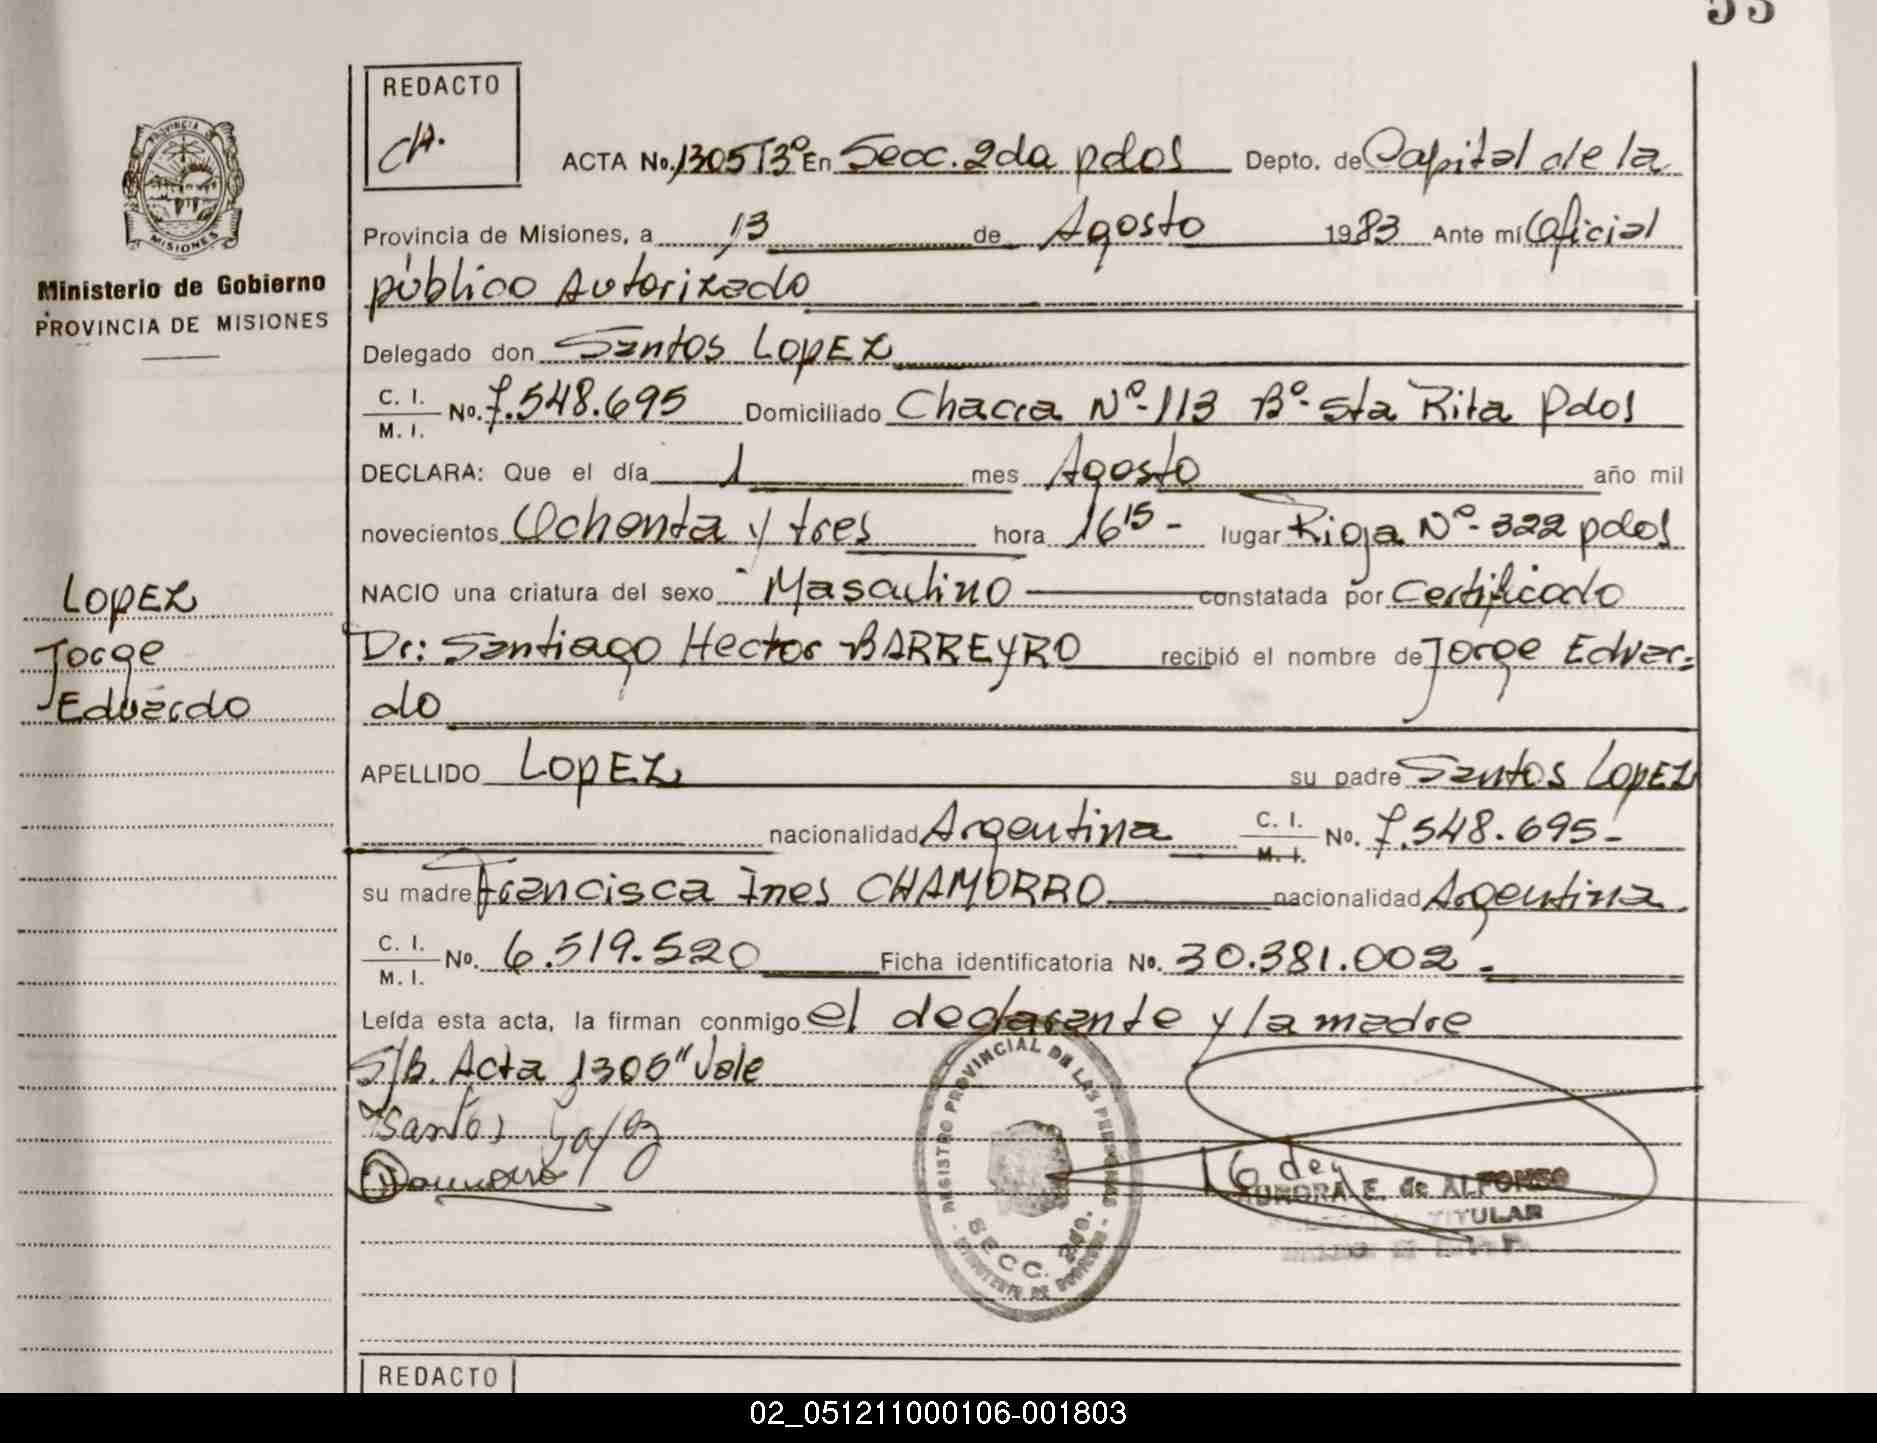 55
REDACTO
CH.
PROVINCIA DE
MISIONES
Ministerio de Gobierno
PROVINCIA DE MISIONES
ACTA No. 1305 T3º En Secc. 2da pdos Depto. de Capital de la
Provincia de Misiones, a 13 de Agosto 1983 Ante mí Oficial
público Autorizado
Delegado don Santos LOPEZ
C. I.
M. I. No. 7.548.695 Domiciliado Chacra Nº-113 Bº- Sta Rita Pdos
DECLARA: Que el día 1 mes Agosto año mil
novecientos Ochenta y tres hora 16 15 - lugar Rioja Nº- 322 pdos
NACIO una criatura del sexo Masculino constatada por Certificado
Dr: Santiago Hector BARREYRO recibió el nombre de Jorge Eduar-
do
LOPEZ
Jorge
Eduardo
APELLIDO LOPEZ su padre Santos LOPEZ
nacionalidad Argentina C. I.
M. I. No. 7.548.695-
su madre Francisca Ines CHAMORRO nacionalidad Argentina
C. I.
M. I. No. 6.519.520 Ficha identificatoria No. 30.381.002 -
Leída esta acta, la firman conmigo el declarante y la madre
S/B. Acta 1305" Vale
Santos
REGISTRO PROVINCIAL DE LAS PERSONAS
SECC. 2da.
MINISTERIO DE GOBIERNO
AURORA E. de ALFONSO
TITULAR
REDACTO
02_051211000106-001803